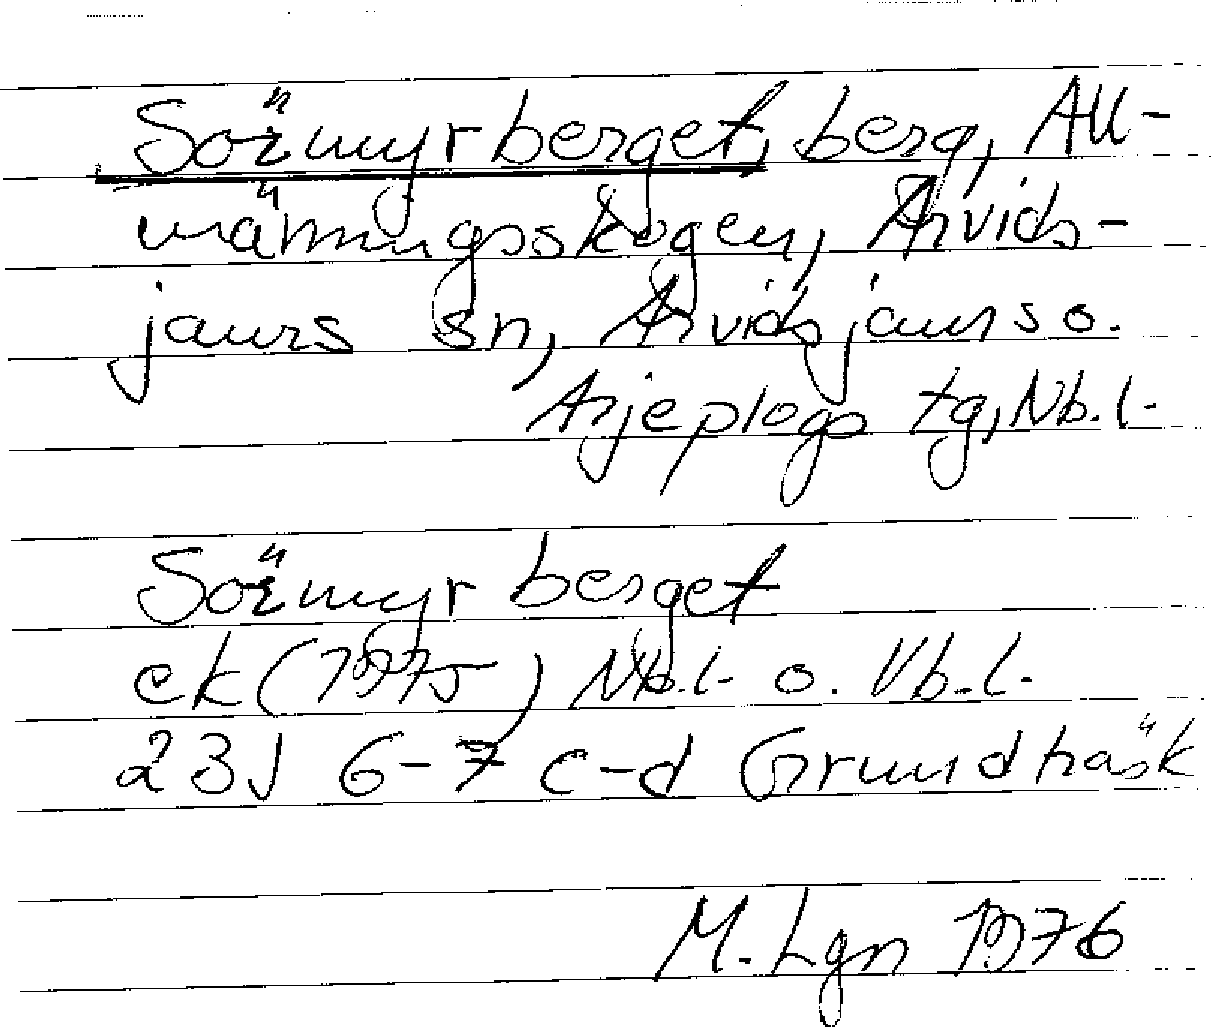 Sörmyrberget, berg, All-
männingsskogen, Arvids-
jaurs sn, Arvidsjaurs o.
Arjeplogs tg, Nb.l.
Sörmyrberget
ek (1975) Nb.l. o. Vb.l.
23J 6-7 c-d Grundträsk
M. Lgn 1976